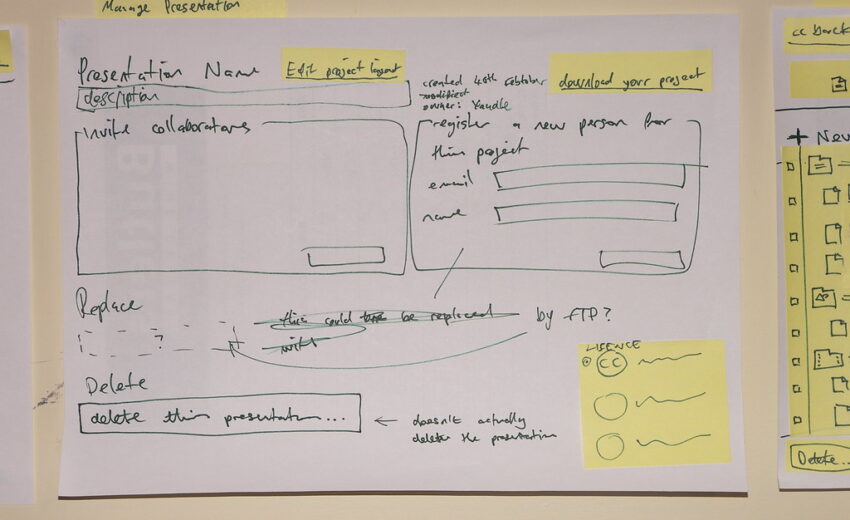 Manage Presentation
Presentation Name
Edit project layout
description
created 4th october
modified
owner: Xandle
download your project
Invite collaborators
register a new person for
this project
email
name
Replace
?
this could be replaced
with
by FTP?
Delete
delete this presentation...
← doesn't actually
delete the presentation
LISENCE
CC
cc back
+ New
Delete..